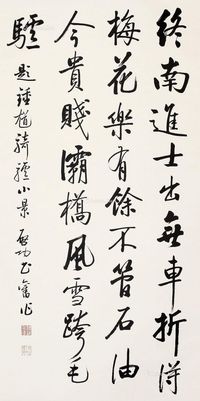 終南進士出無車折得
梅花樂有餘不管石油
今貴賤灞橋風雪跨毛
驢
題鍾馗騎驢小景 啟功書舊作